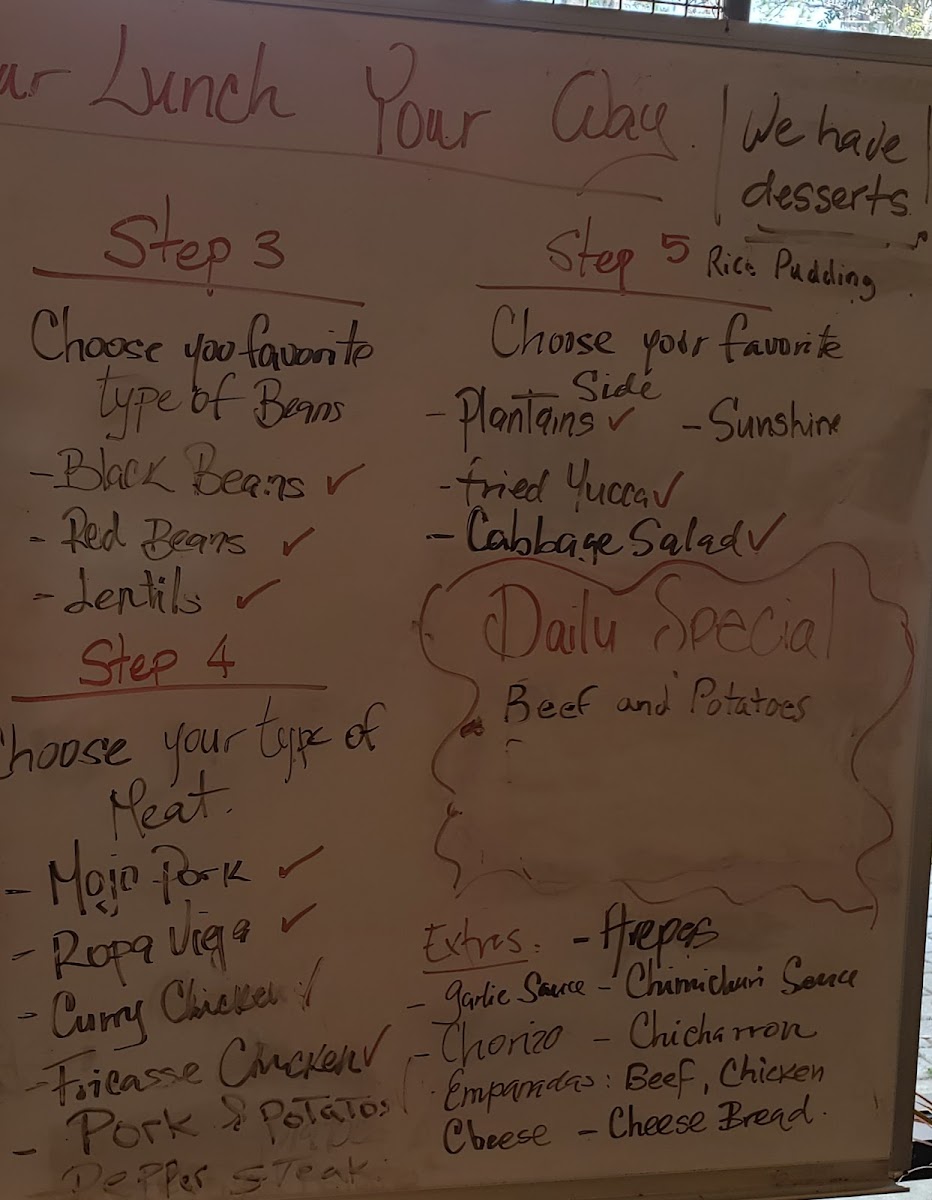 ur Lunch Your Way
We have
desserts
Rice Pudding
Step 3
Choose you favorite
type of Beans
- Black Beans ✓
- Red Beans ✓
- Lentils ✓
Step 4
Choose your type of
Meat.
- Mojo Pork ✓
- Ropa Vieja ✓
- Curry Chicken ✓
- Fricasse Chicken ✓
- Pork & Potatos
Pepper steak.
Step 5
Choose your favorite
Side
- Plantains ✓ - Sunshine
- fried Yucca ✓
- Cabbage Salad ✓
Daily Special
Beef and Potatoes
Extras: - Arepas
- garlic Sauce - Chimichuri Sauce
- Chorizo - Chicharron
Empanadas: Beef, Chicken
Cheese - Cheese Bread.